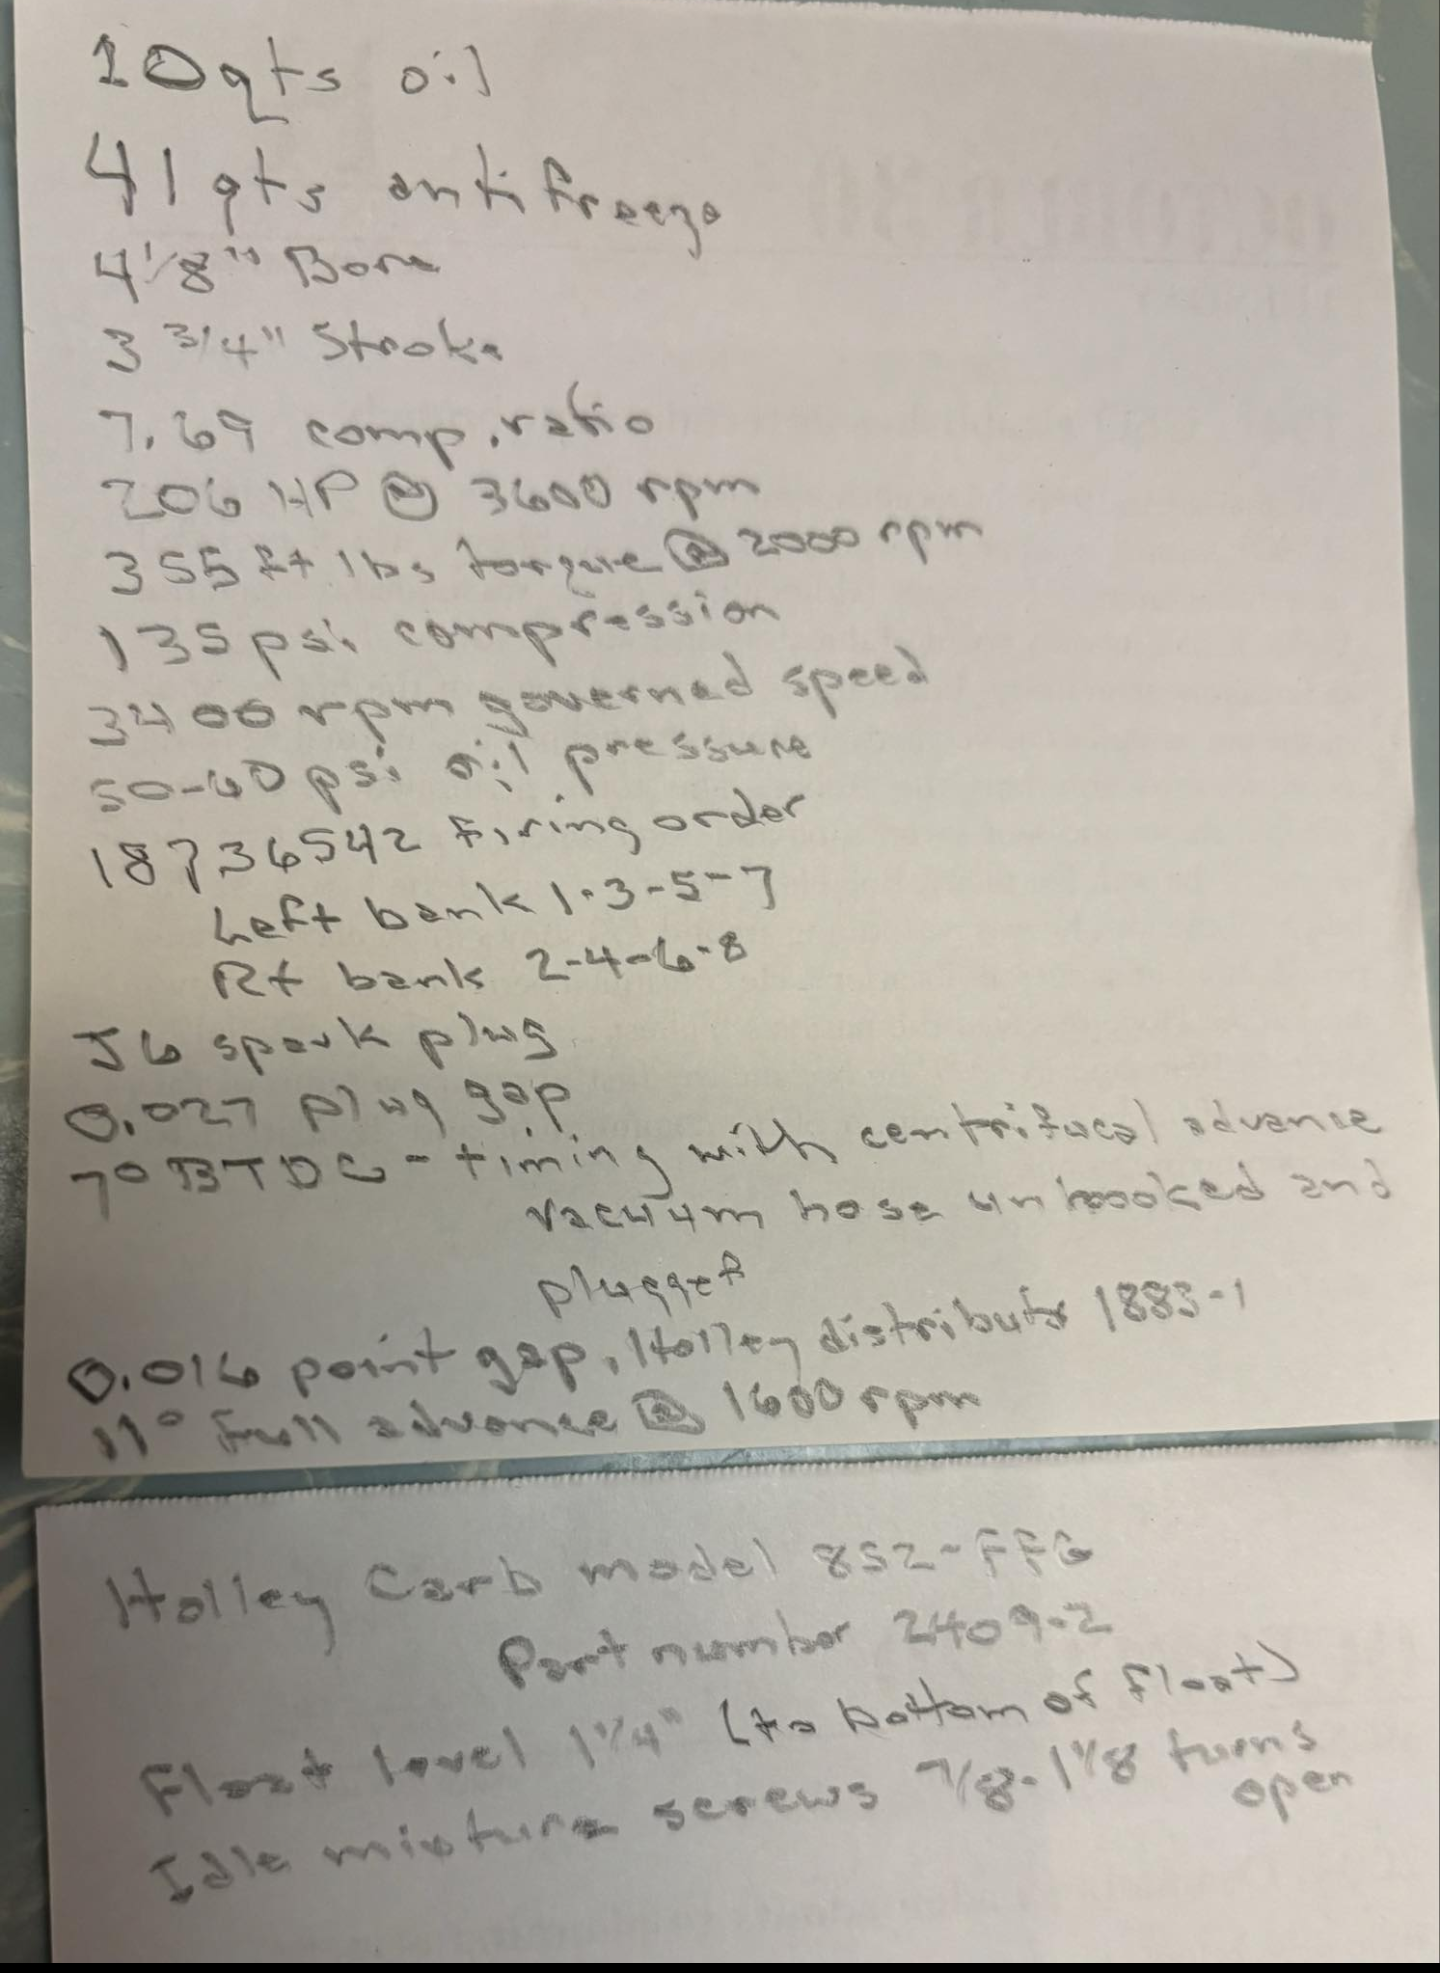 10 qts oil
41 qts antifreeze
4 1/8" Bore
3 3/4" Stroke
7.69 comp. ratio
206 HP @ 3600 rpm
355 ft lbs torque @ 2000 rpm
135 psi compression
3400 rpm governed speed
50-60 psi oil pressure
18736542 firing order
Left bank 1-3-5-7
Rt bank 2-4-6-8
J6 spark plug
0.027 plug gap
7° BTDC - timing with centrifucal advance
vacuum hose unhooked and
plugged
0.016 point gap, Holley distributor 1883-1
11° full advance @ 1600 rpm
Holley Carb model 852-FFG
Part number 2409-2
Float level 1 1/4" (to bottom of float)
Idle mixture screws 7/8-1 1/8 turns
open